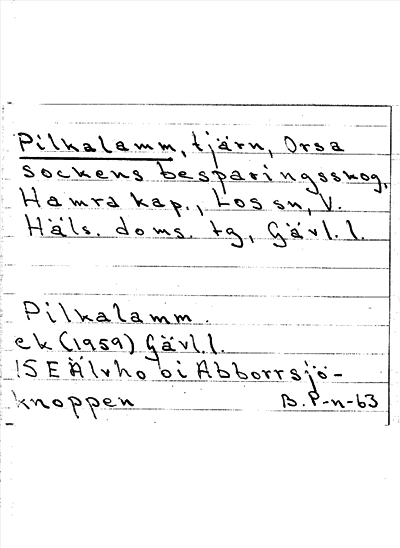 Pilkalamm, tjärn, Orsa
sockens besparingsskog,
Hamra kap., Los sn, V.
Häls. doms. tg, Gävl. l.
Pilkalamm.
ek (1959) Gävl. l.
15 E Älvho 0i Abborrsjö-
knoppen B. P-n-63